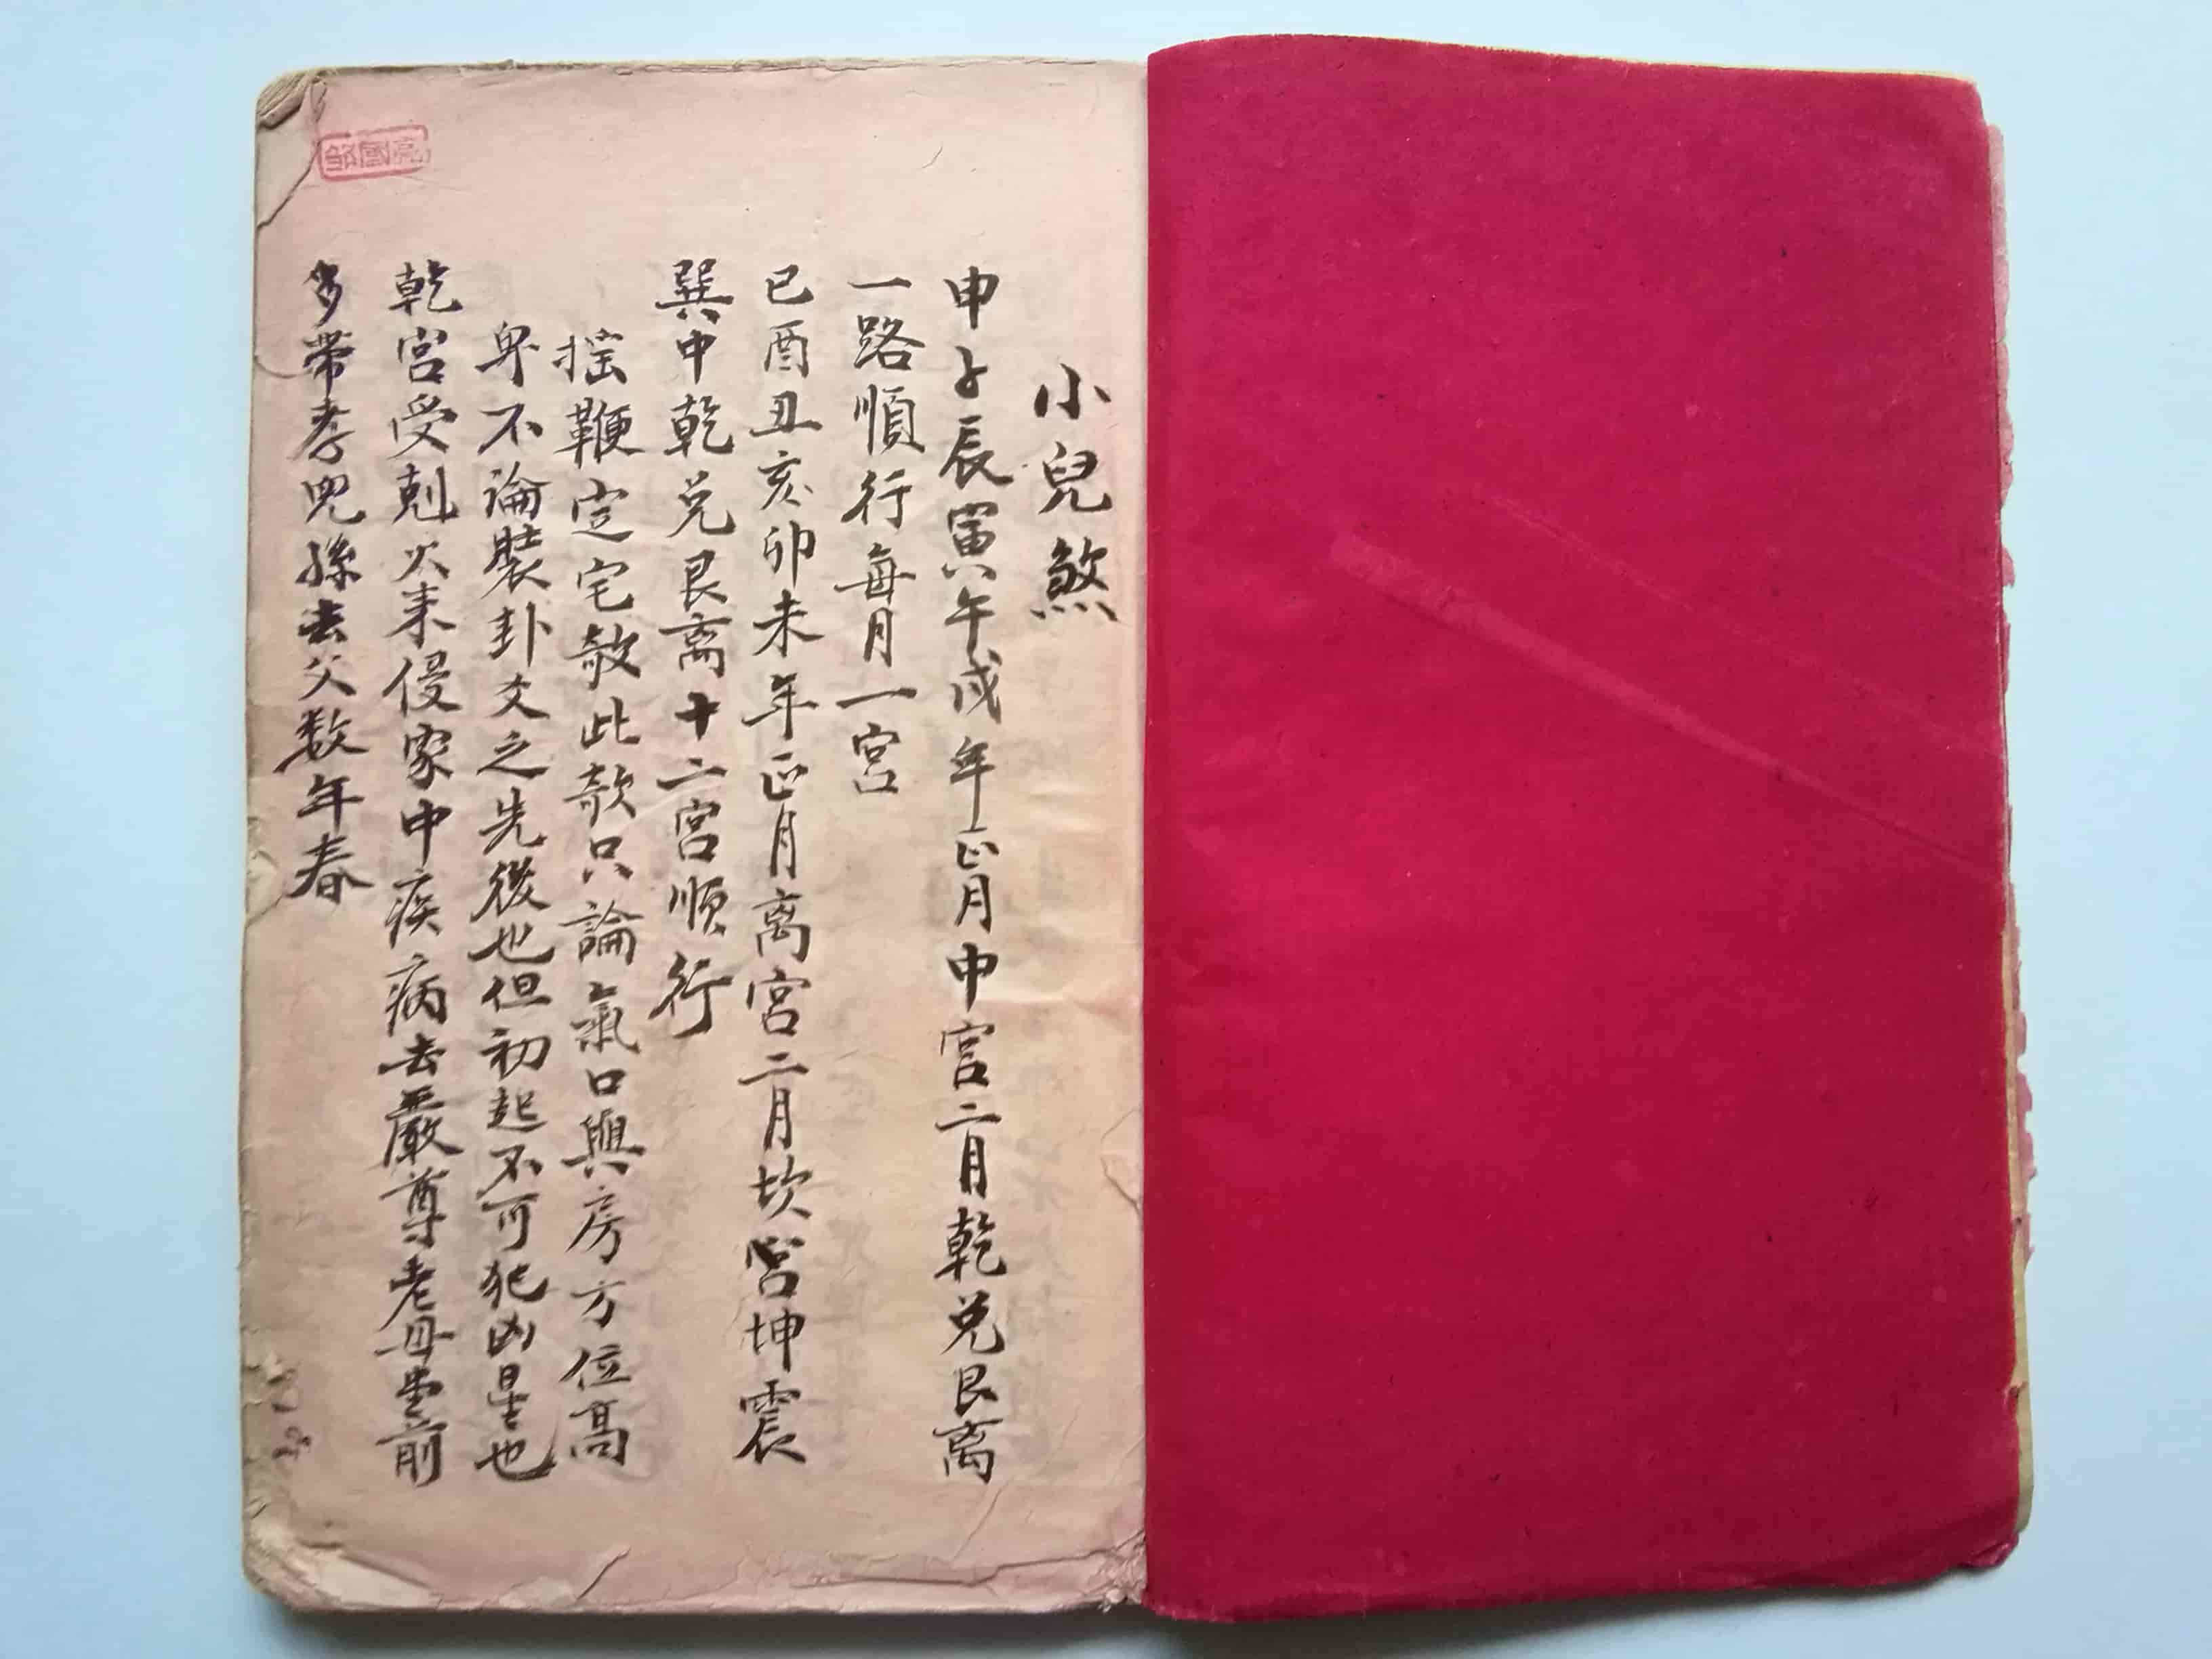 小兒煞
申子辰寅午戍年正月中宫二月乾兑艮离
一路順行每月一宫
巳酉丑亥卯未年正月离宫二月坎宫坤震
巽中乾兑艮离十二宫順行
摇鞭定宅敨此欵只論氣口與房方位高
卑不論裝卦爻之先後也但初起不可犯凶星也
乾宫受剋火来侵家中疾病去嚴尊老母堂前
多帶孝兒孫去父数年春
邹國亮